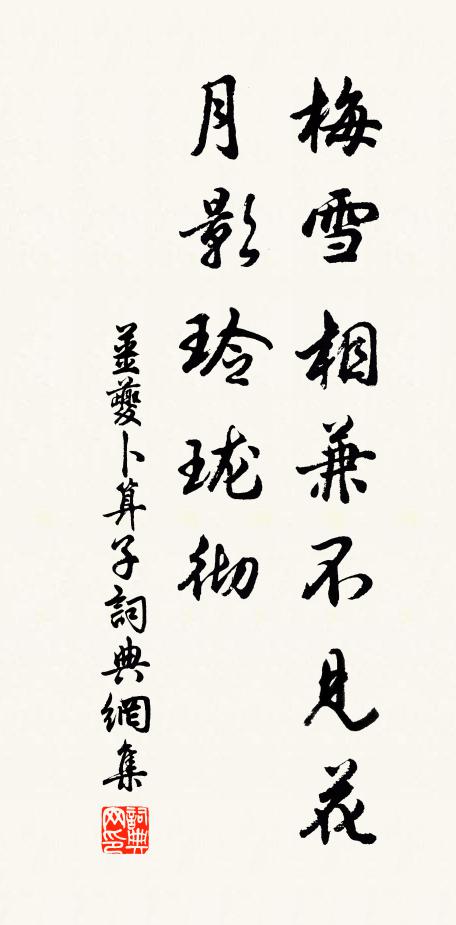 梅雪相兼不見花
月影玲珑彻
薑夔卜算子詞典網集
詞典网印